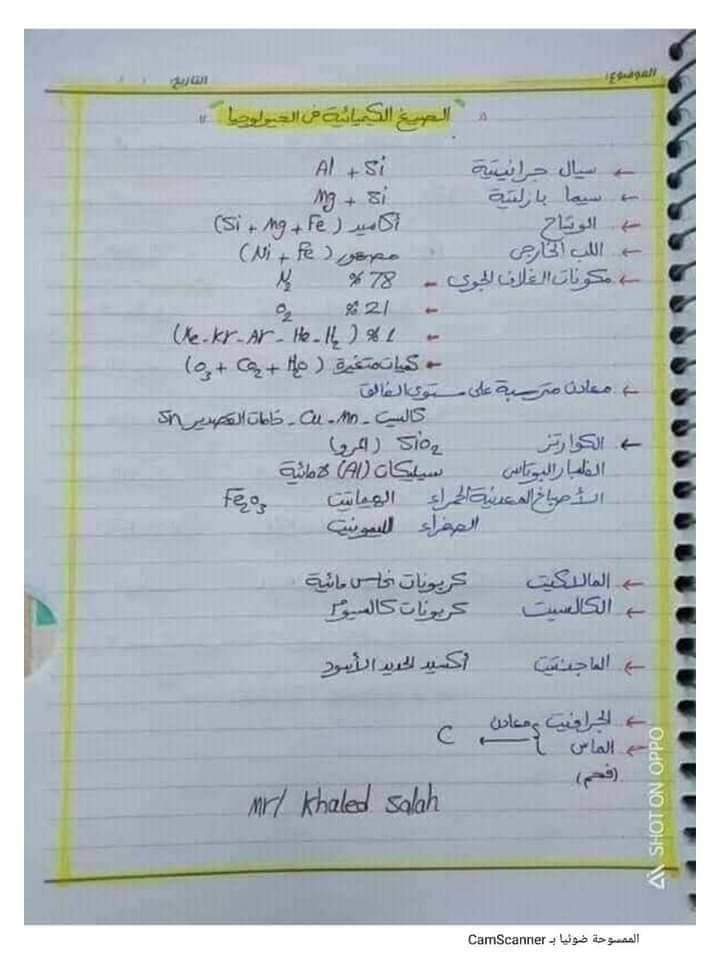 الموضوع: التاريخ: / /
" الصيغ الكيميائية في الجيولوجيا "
← سيال جرانيتية Al + Si
← سيما بازلتية Mg + Si
← الوشاح أكاسيد (Si + Mg + Fe)
← اللب الخارجى مصهور (Ni + Fe)
← مكونات الغلاف الجوى - 78 % N2
- 21 % O2
- 1 % (Ne - Kr - Ar - He - H2)
- كميات متغيرة (O3 + CO2 + H2O)
← معادن مترسبة على مستوى الفالق
كالسيت - Cu - Mn - خامات القصدير Sn
← الكوارتز SiO2 (المرو)
الفلسبار البوتاسى سيليكات (Al) لامائية
الأصباغ المعدنية الحمراء الهيماتيت Fe2O3
الصفراء الليمونيت
← المالاكيت كربونات نحاس مائية
← الكالسيت كربونات كالسيوم
← الماجنتيت أكسيد الحديد الأسود
← الجرافيت
← الماس } معادن ← C
(فحم)
mr/ Khaled Salah
SHOT ON OPPO
الممسوحة ضوئيا بـ CamScanner